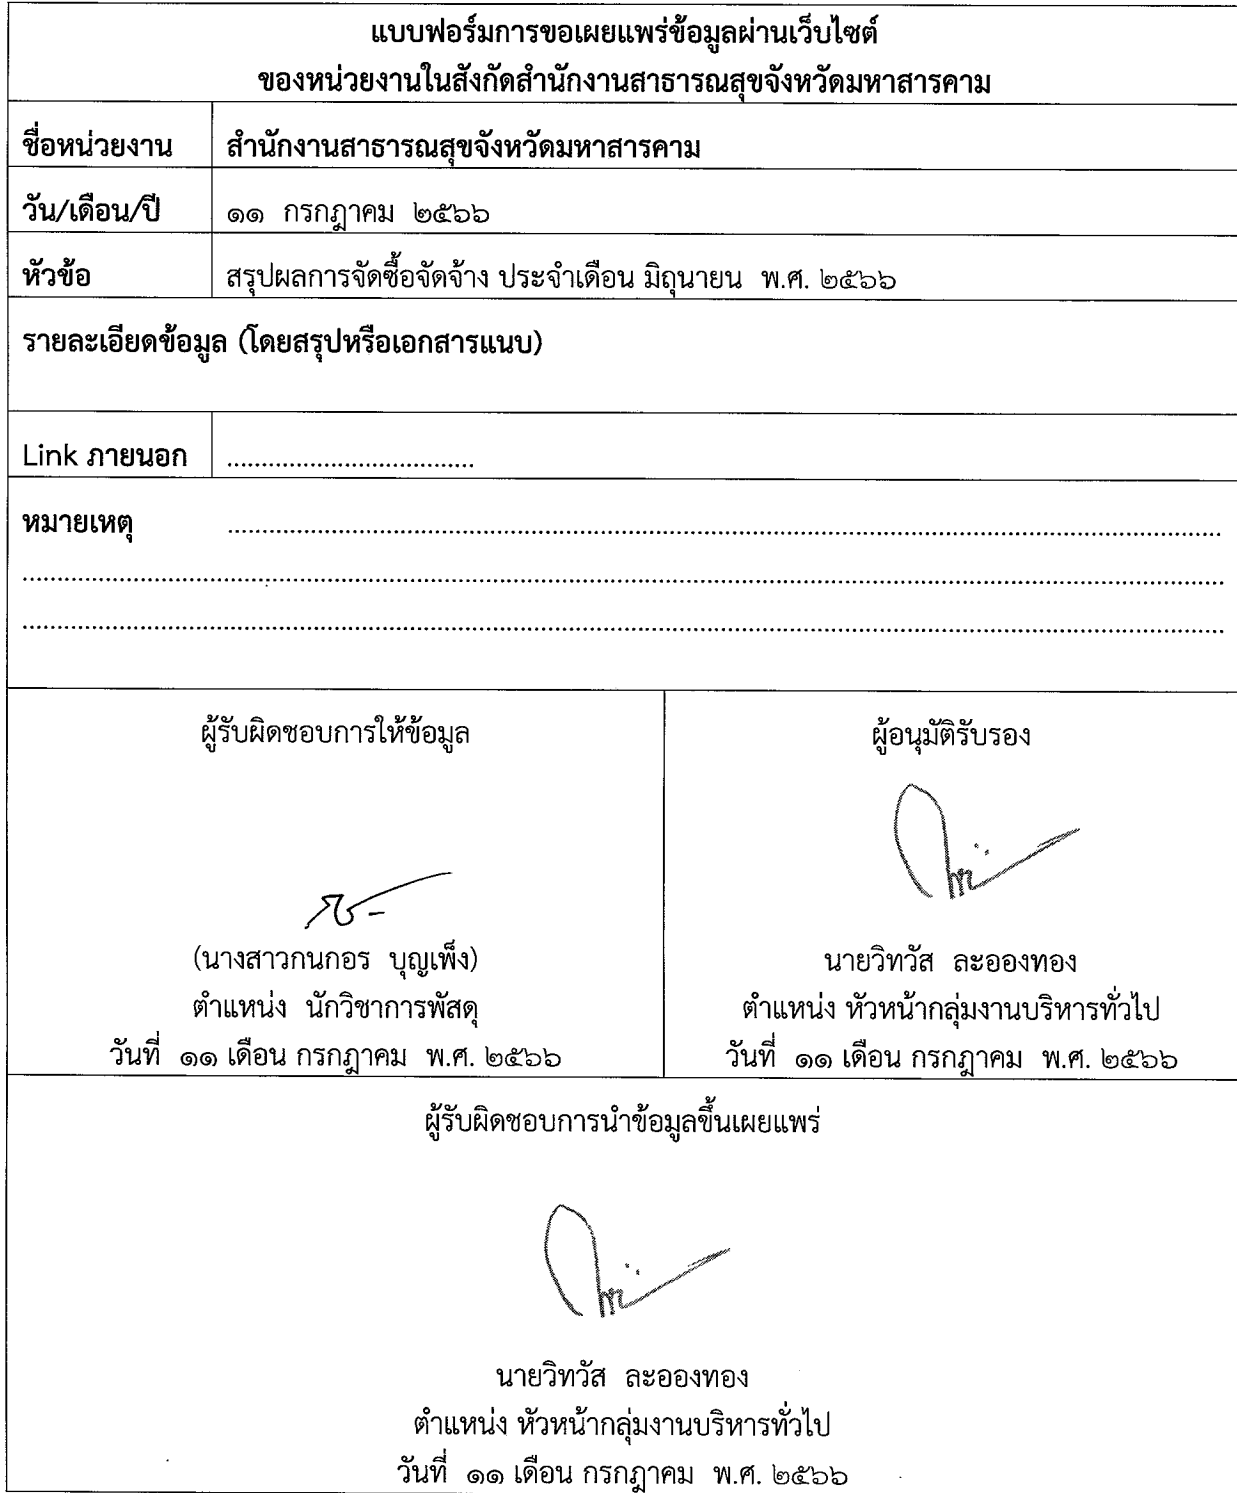 แบบฟอร์มการขอเผยแพร่ข้อมูลผ่านเว็บไซต์
ของหน่วยงานในสังกัดสำนักงานสาธารณสุขจังหวัดมหาสารคาม
ชื่อหน่วยงาน สำนักงานสาธารณสุขจังหวัดมหาสารคาม
วัน/เดือน/ปี ๑๑ กรกฎาคม ๒๕๖๖
หัวข้อ สรุปผลการจัดซื้อจัดจ้าง ประจำเดือน มิถุนายน พ.ศ. ๒๕๖๖
รายละเอียดข้อมูล (โดยสรุปหรือเอกสารแนบ)
Link ภายนอก .....................................
หมายเหตุ ................................................................................
................................................................................
................................................................................
ผู้รับผิดชอบการให้ข้อมูล
(นางสาวกนกอร บุญเพ็ง)
ตำแหน่ง นักวิชาการพัสดุ
วันที่ ๑๑ เดือน กรกฎาคม พ.ศ. ๒๕๖๖
ผู้อนุมัติรับรอง
นายวิทวัส ละอองทอง
ตำแหน่ง หัวหน้ากลุ่มงานบริหารทั่วไป
วันที่ ๑๑ เดือน กรกฎาคม พ.ศ. ๒๕๖๖
ผู้รับผิดชอบการนำข้อมูลขึ้นเผยแพร่
นายวิทวัส ละอองทอง
ตำแหน่ง หัวหน้ากลุ่มงานบริหารทั่วไป
วันที่ ๑๑ เดือน กรกฎาคม พ.ศ. ๒๕๖๖